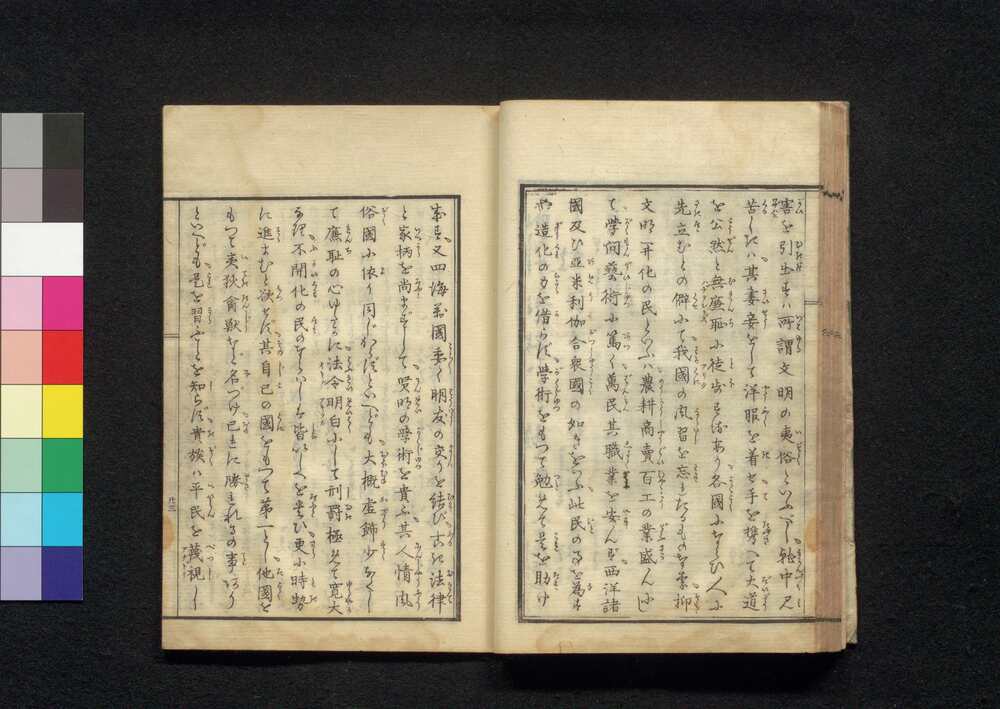 害を引出す所謂文明の夷俗といふべし就中見
苦しきハ其妻妾をして洋服を着せ手を携へて大道
を公然と無廉耻に徒歩する
先立むとの僻にて我國の風習を忘れたるものなり抑
文明開化の民といふハ農耕商賣百工の業盛んにし
て學問藝術に篤く萬民其職業を安んず西洋諸
國及び亜米利伽合衆國の如きをいふ此民の
造化の力を借らず學術をもつて勉めて是を助け
又四海萬國委く朋友の交りを結び古き法律
と家柄を尚まずして発明の學術を貴ぶ其人情風
俗國に依り同じからずといへども大概虚飾少なくし
て廉耻の心ゆたかに法令明白にして刑罰極めて寛大
なり不開化の民のならハしハ皆いにしへを貴び更に時勢
に進まむと欲せず其自己の國をもつて第一とし他國を
もつて夷狄禽獣なと名づけ已に勝れたるの事あり
といへども是を習ふことを知らず貴族ハ平民を蔑視し
廿三